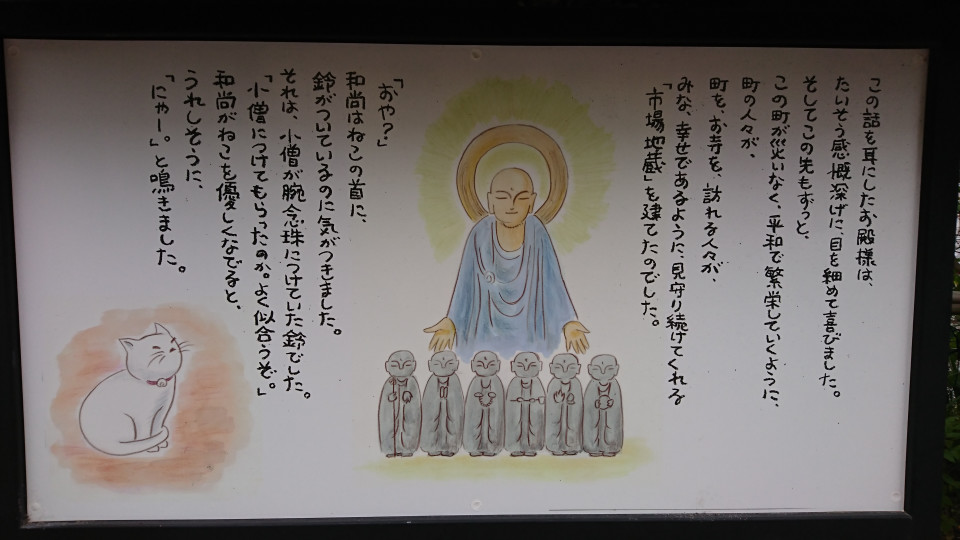 この話を耳にしたお殿様は、
たいそう感概深げに、目を細めて喜びました。
そしてこの先もずっと、
この町が災いなく、平和で繁栄していくように、
町の人々が、
町を、お寺を、訪れる人々が、
みな、幸せであるように、見守り続けてくれる
「市場地蔵」を建てたのでした。
「おや？」
和尚はねこの首に、
鈴がついているのに気がつきました。
それは、小僧が腕念珠につけていた鈴でした。
「小僧につけてもらったのか。よく似合うぞ。」
和尚がねこを優しくなでると、
うれしそうに、
「にゃー。」と鳴きました。